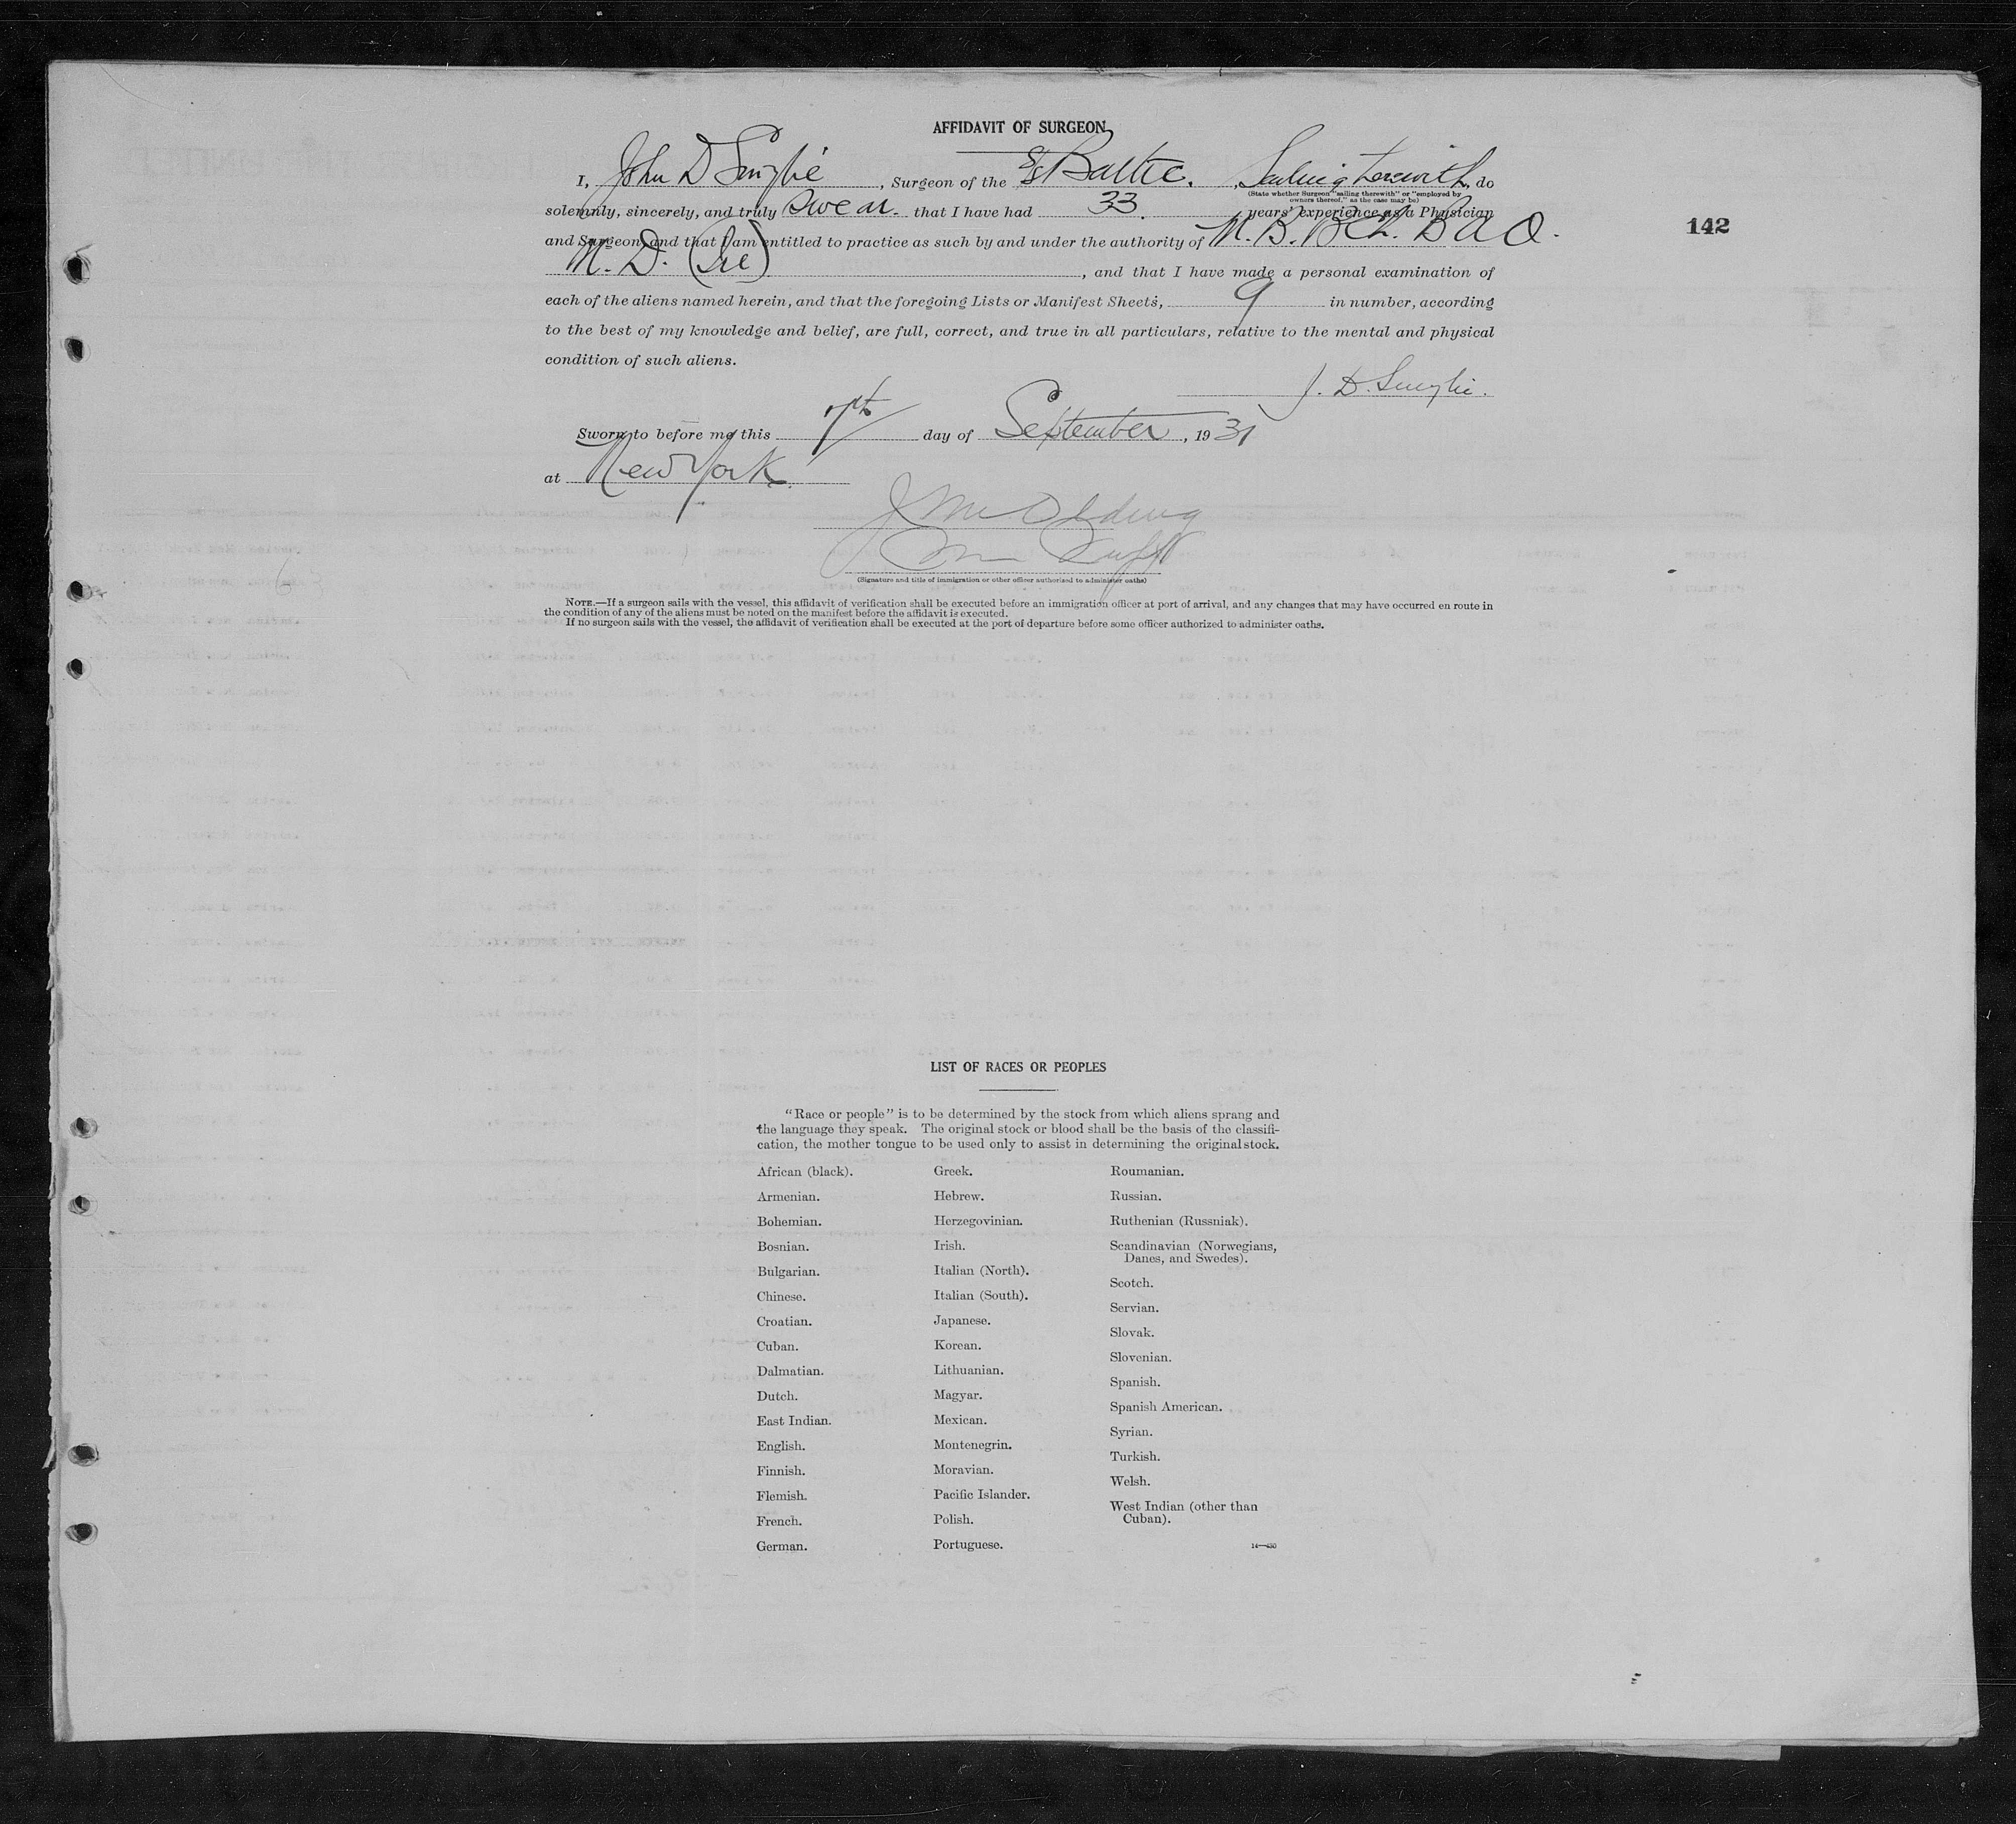 AFFIDAVIT OF SURGEON
I, John D Smylie, Surgeon of the S/S Baltic., Sailing therewith, do
(State whether Surgeon "sailing therewith" or "employed by
owners thereof," as the case may be)
solemnly, sincerely, and truly swear. that I have had 33. years' experience as a Physician
142
and Surgeon, and that I am entitled to practice as such by and under the authority of M. B. BCh. B A O.
M. D. (Ire), and that I have made a personal examination of
each of the aliens named herein, and that the foregoing Lists or Manifest Sheets, 9 in number, according
to the best of my knowledge and belief, are full, correct, and true in all particulars, relative to the mental and physical
condition of such aliens.
J. D. Smylie.
Sworn to before me this day of September, 1931
at New York.
(Signature and title of immigration or other officer authorized to administer oaths)
NOTE.—If a surgeon sails with the vessel, this affidavit of verification shall be executed before an immigration officer at port of arrival, and any changes that may have occurred en route in
the condition of any of the aliens must be noted on the manifest before the affidavit is executed.
If no surgeon sails with the vessel, the affidavit of verification shall be executed at the port of departure before some officer authorized to administer oaths.
LIST OF RACES OR PEOPLES
"Race or people" is to be determined by the stock from which aliens sprang and
the language they speak. The original stock or blood shall be the basis of the classifi-
cation, the mother tongue to be used only to assist in determining the original stock.
African (black).
Armenian.
Bohemian.
Bosnian.
Bulgarian.
Chinese.
Croatian.
Cuban.
Dalmatian.
Dutch.
East Indian.
English.
Finnish.
Flemish.
French.
German.
Greek.
Hebrew.
Herzegovinian.
Irish.
Italian (North).
Italian (South).
Japanese.
Korean.
Lithuanian.
Magyar.
Mexican.
Montenegrin.
Moravian.
Pacific Islander.
Polish.
Portuguese.
Roumanian.
Russian.
Ruthenian (Russniak).
Scandinavian (Norwegians,
Danes, and Swedes).
Scotch.
Servian.
Slovak.
Slovenian.
Spanish.
Spanish American.
Syrian.
Turkish.
Welsh.
West Indian (other than
Cuban).